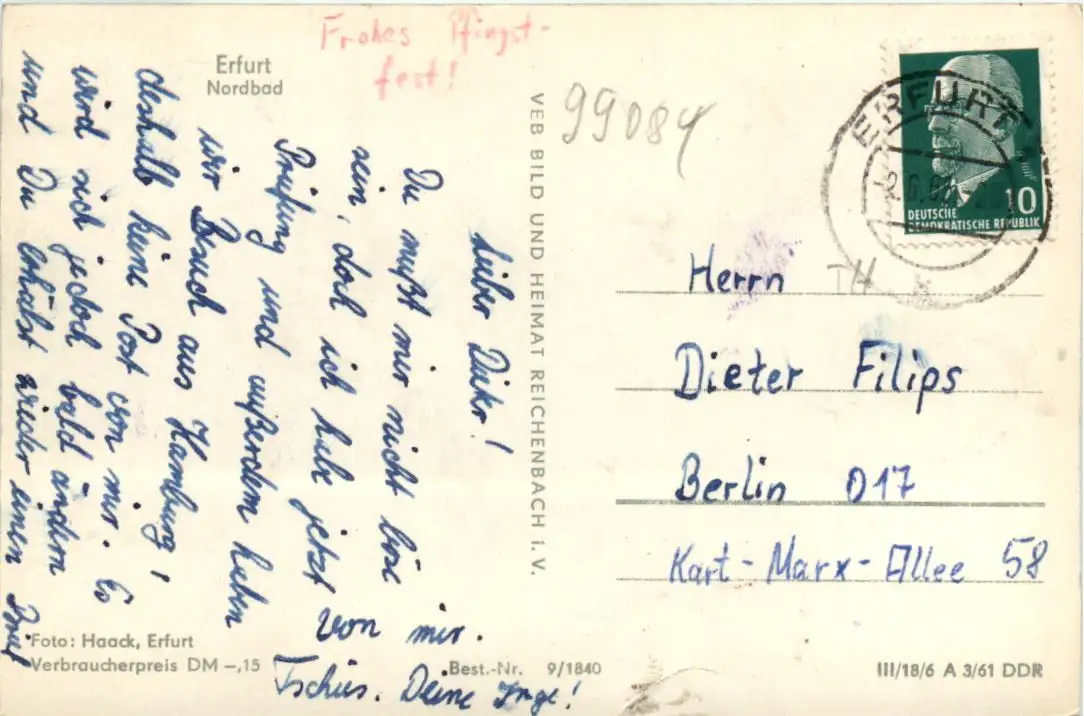 Frohes Pfingst-
fest!
Erfurt
Nordbad
Lieber Dieter!
Du mußt mir nicht böse
sein, doch ich habe jetzt
Prüfung und außerdem haben
wir Besuch aus Hamburg,
deshalb keine Post von mir. Es
wird sich jedoch bald ändern
und Du erhälst wieder einen Brief
von mir.
Tschüs. Deine Inge!
Foto: Haack, Erfurt
Verbraucherpreis DM –,15
Best.-Nr. 9/1840
VEB BILD UND HEIMAT REICHENBACH i. V.
99084
ERFURT
10
DEUTSCHE
DEMOKRATISCHE REPUBLIK
TH
Herrn
Dieter Filips
Berlin 017
Karl-Marx-Allee 58
III/18/6 A 3/61 DDR